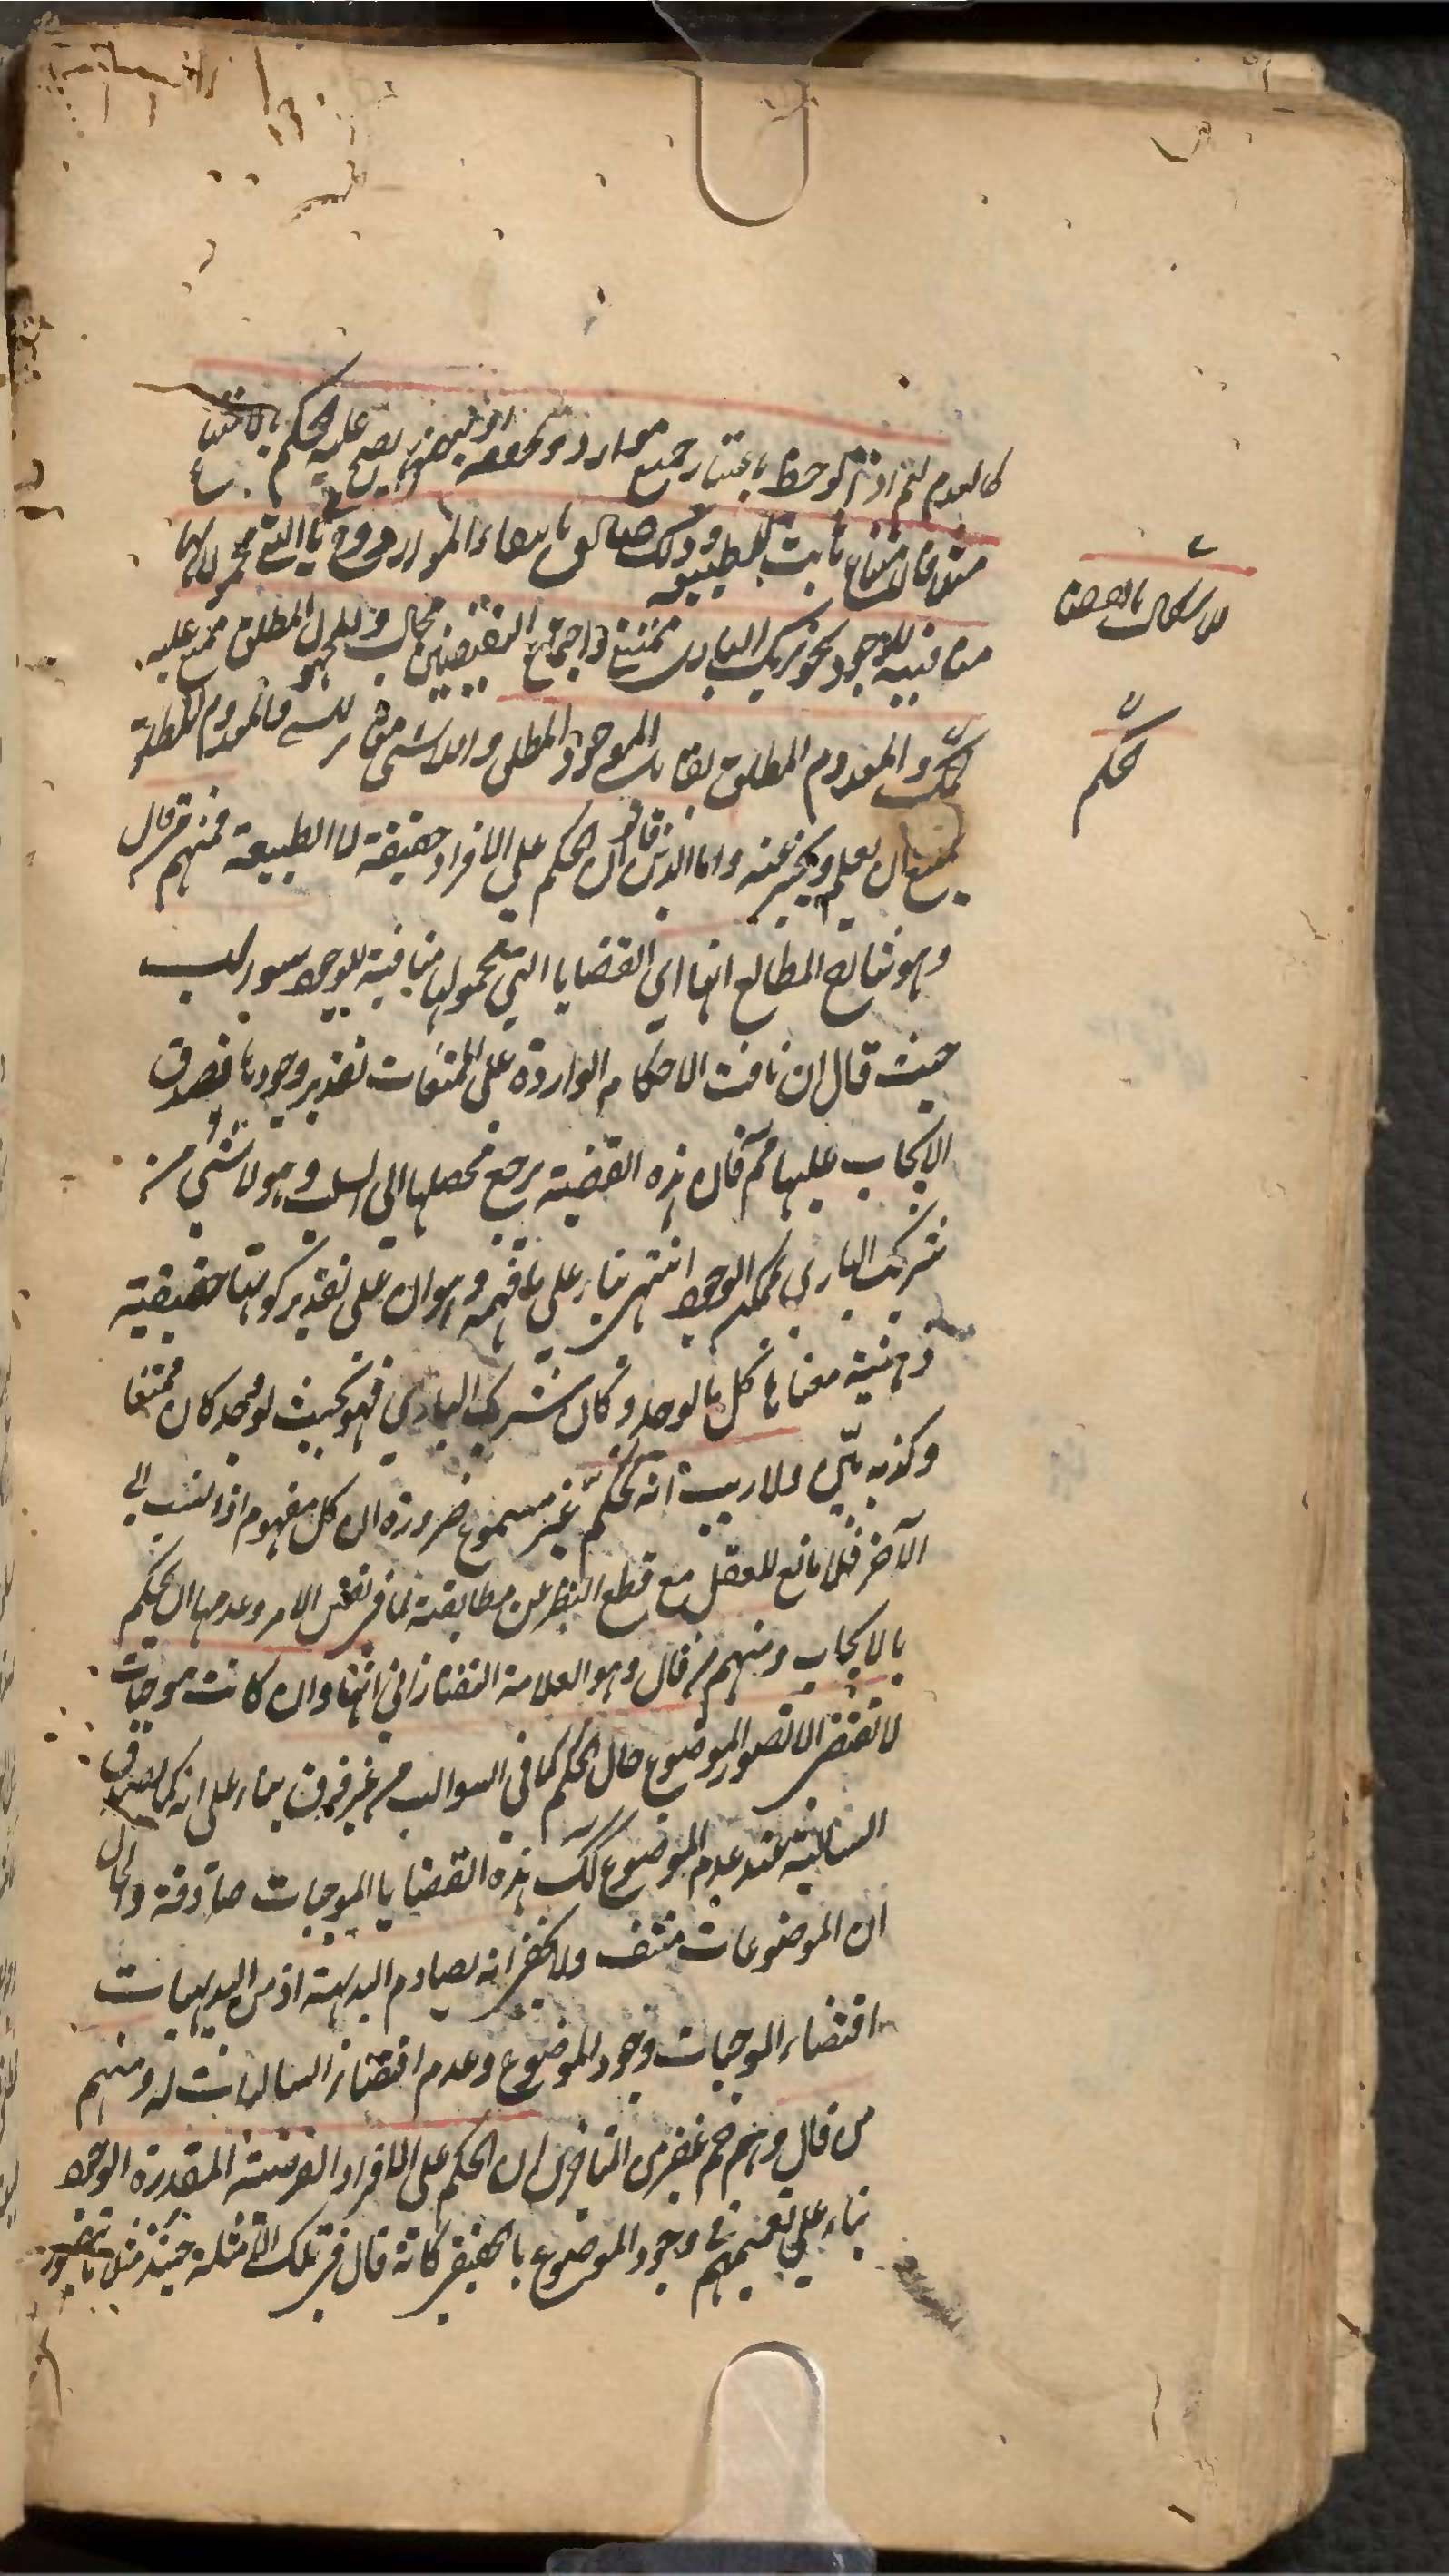 كالعدم نعم اذا لوحظ باعتبار جميع موارد تحققه او بعضها يصح عليه الحكم بالامتناع
مثلا فالامتناع ثابت للطبيعة وذلك صادق بانتفاء الموارد وح القضايا التي محمولاتها
منافية للوجود نحو شريك الباري ممتنع واجتماع النقيضين محال والمجهول المطلق يمتنع عليه
الحكم والمعدوم المطلق يقابل الموجود المطلق واللاشيء فالمعدوم المطلق
يمتنع ان يعلم ويخبر عنه واما الذين قالوا ان الحكم على الافراد حقيقة لا الطبيعة فمنهم من قال
وهو شارح المطالع انها اي القضايا التي محمولها منافية للوجود سوالب
حيث قال ان نافت الاحكام الواردة على الممتنعات تقدير وجودها فصدق
الايجاب عليها ثم قال هذه القضية يرجع محصلها الى السلب وهو لا شيء من
شريك الباري بممكن الوجود انتهى بناء على ما فهمه وهو ان على تقدير كونها حقيقية
ذهنية معناها كل ما لو وجد وكان شريك الباري فهو بحيث لو وجد كان ممتنعا
وكذبه بيّن ولا ريب انه تحكّم غير مسموع ضرورة ان كل مفهوم اذا نسب الى
الآخر فلا مانع للعقل مع قطع النظر عن مطابقته لما في نفس الامر وعدمها ان يحكم
بالايجاب ومنهم من قال وهو العلامة التفتازاني انها وان كانت موجبات
لا تقتضي الا تصور الموضوع حال الحكم كما في السوالب من غير فرق بناء على انه كما يصدق
السالبة عند عدم الموضوع كذلك هذه القضايا الموجبات صادقة والحال
ان الموضوعات منتف ولا يخفى انه يصادم البديهة اذ من البديهيات
اقتضاء الموجبات وجود الموضوع وعدم اقتضاء السالبات له ومنهم
من قال وهم جم غفير من المتأخرين ان الحكم على الافراد الفرضية المقدرة الوجود
بناء على تعميمهم في وجود الموضوع كانه قال في تلك الامثلة حينئذ مثلا ما يتصور
لا يمكن
تحكّم